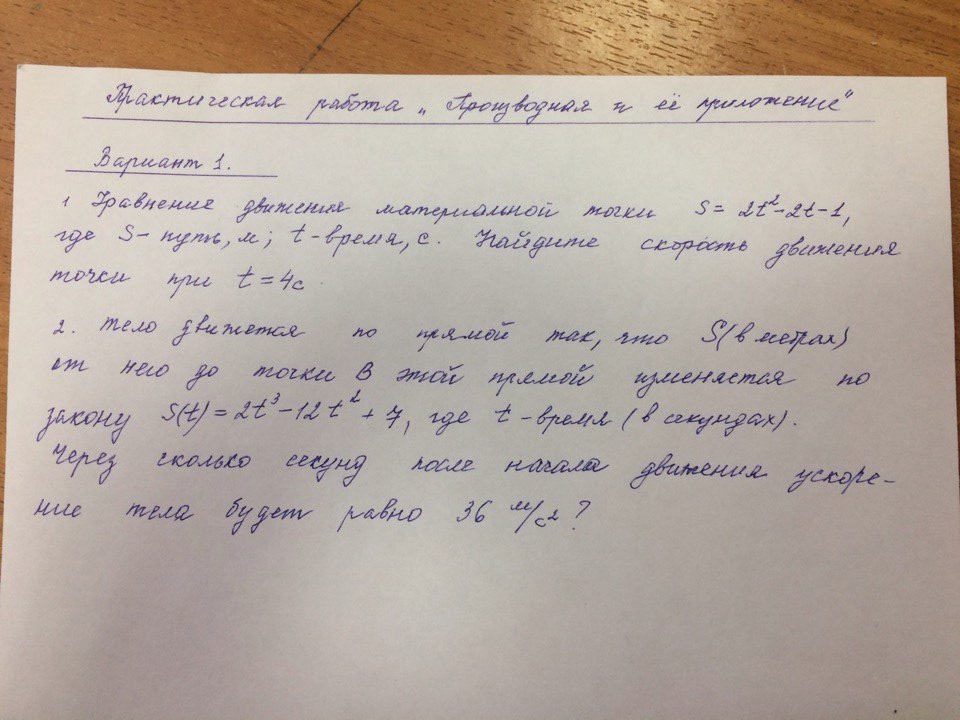 Практическая работа „Производная и её приложение“
Вариант 1.
1 Уравнение движения материальной точки S = 2t²-2t-1,
где S - путь, м; t - время, с. Найдите скорость движения
точки при t = 4c.
2. Тело движется по прямой так, что S (в метрах)
от него до точки В этой прямой изменяется по
закону S(t) = 2t³-12t²+7, где t - время (в секундах).
Через сколько секунд после начала движения ускоре-
ние тела будет равно 36 м/с²?